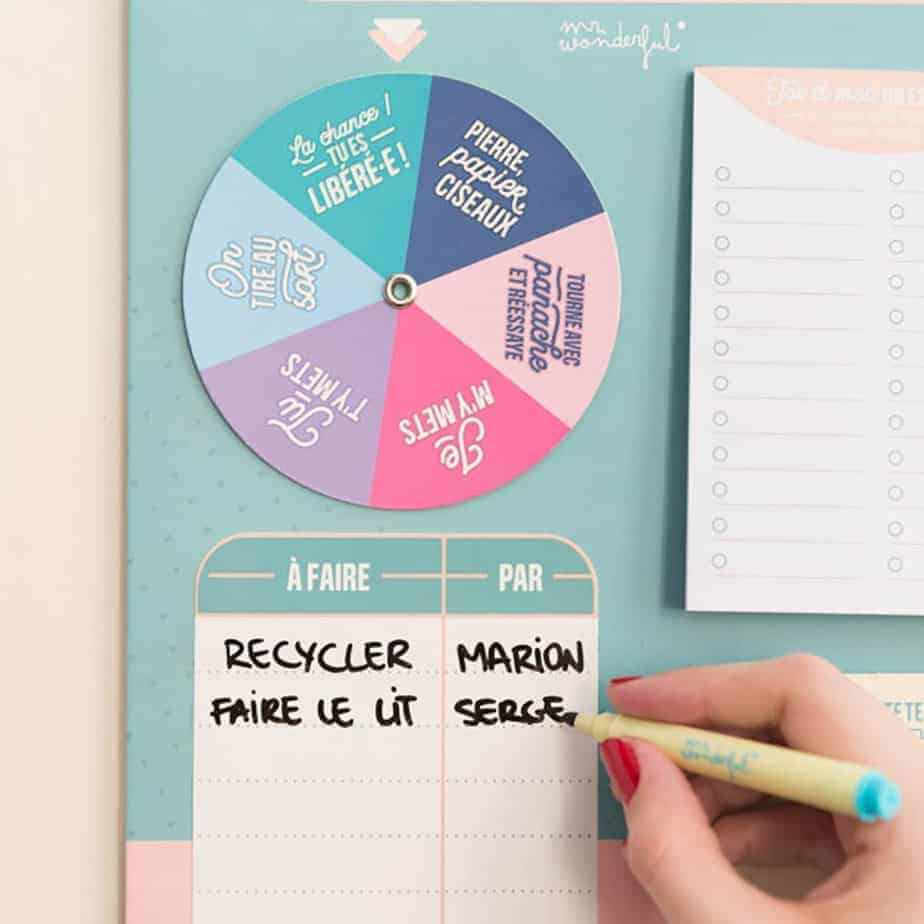 mr.
wonderful
Toi et moi
La chance !
TU ES
LIBÉRÉ·E !
PIERRE,
papier,
CISEAUX
TOURNE AVEC
panache
ET RÉESSAYE
Je
M'Y METS
Tu
T'Y METS
On
TIRE AU
sort
À FAIRE PAR
RECYCLER MARION
FAIRE LE LIT SERGE
mr.
wonderful